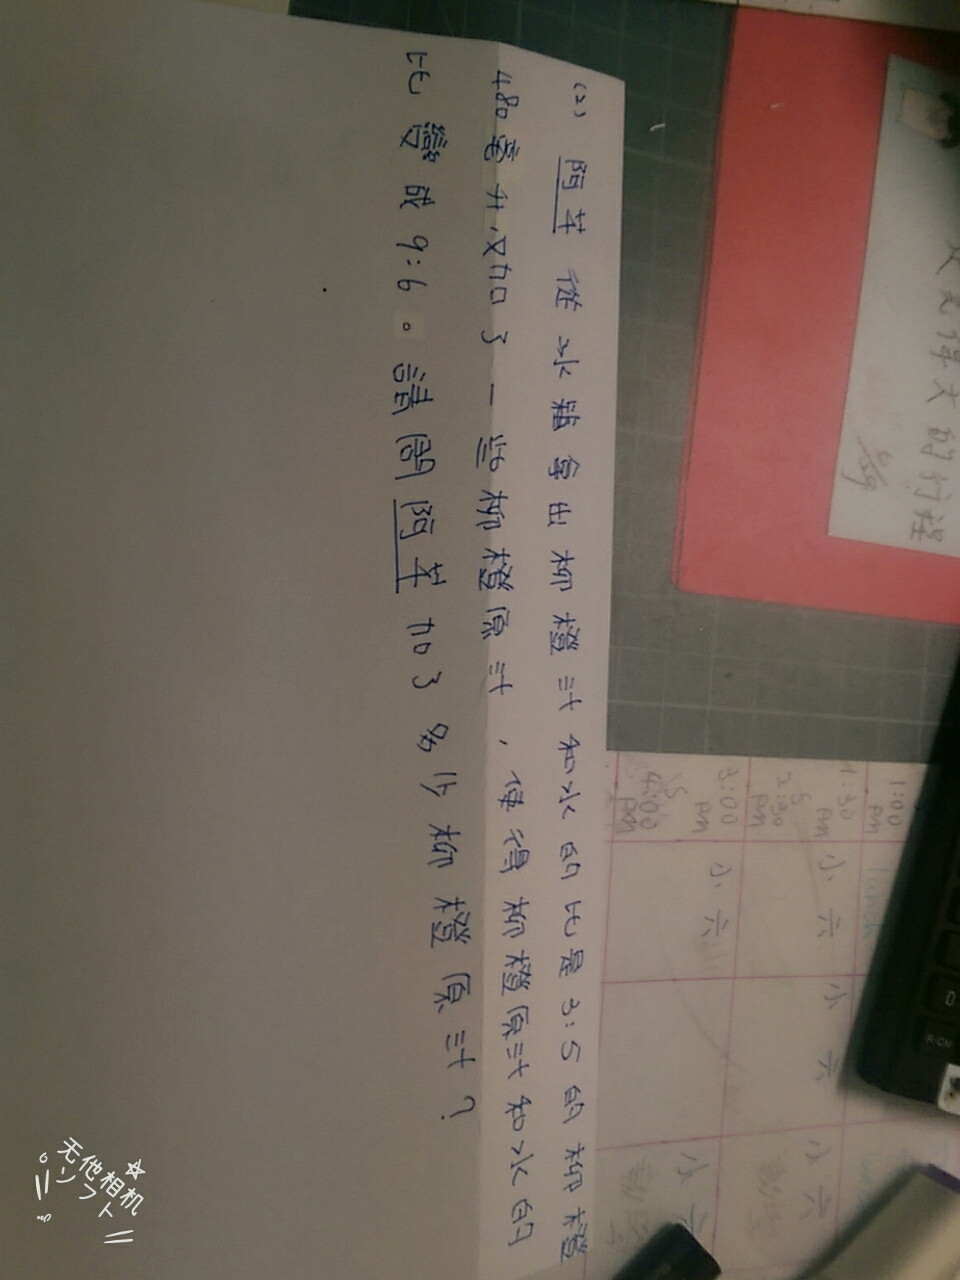 (2) 阿芊從冰箱拿出柳橙汁和水的比是3:5的柳橙
480毫升,又加了一些柳橙原汁,使得柳橙原汁和水的
比變成9:6。請問阿芊加了多少柳橙原汁?
的行程
1:00 pm
1:30 pm
2:30 pm
小六
小六
3:00 pm
4:00 pm
小六
小六
小六
无他相机
ソフト